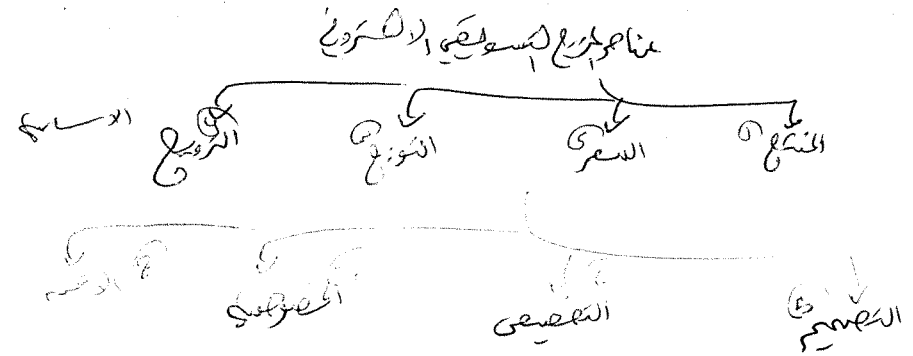 عناصر المزيج التسويقي الالكتروني
المنتج السعر التوزيع الترويج الاساسية
التصميم التخصيص الخصوصية